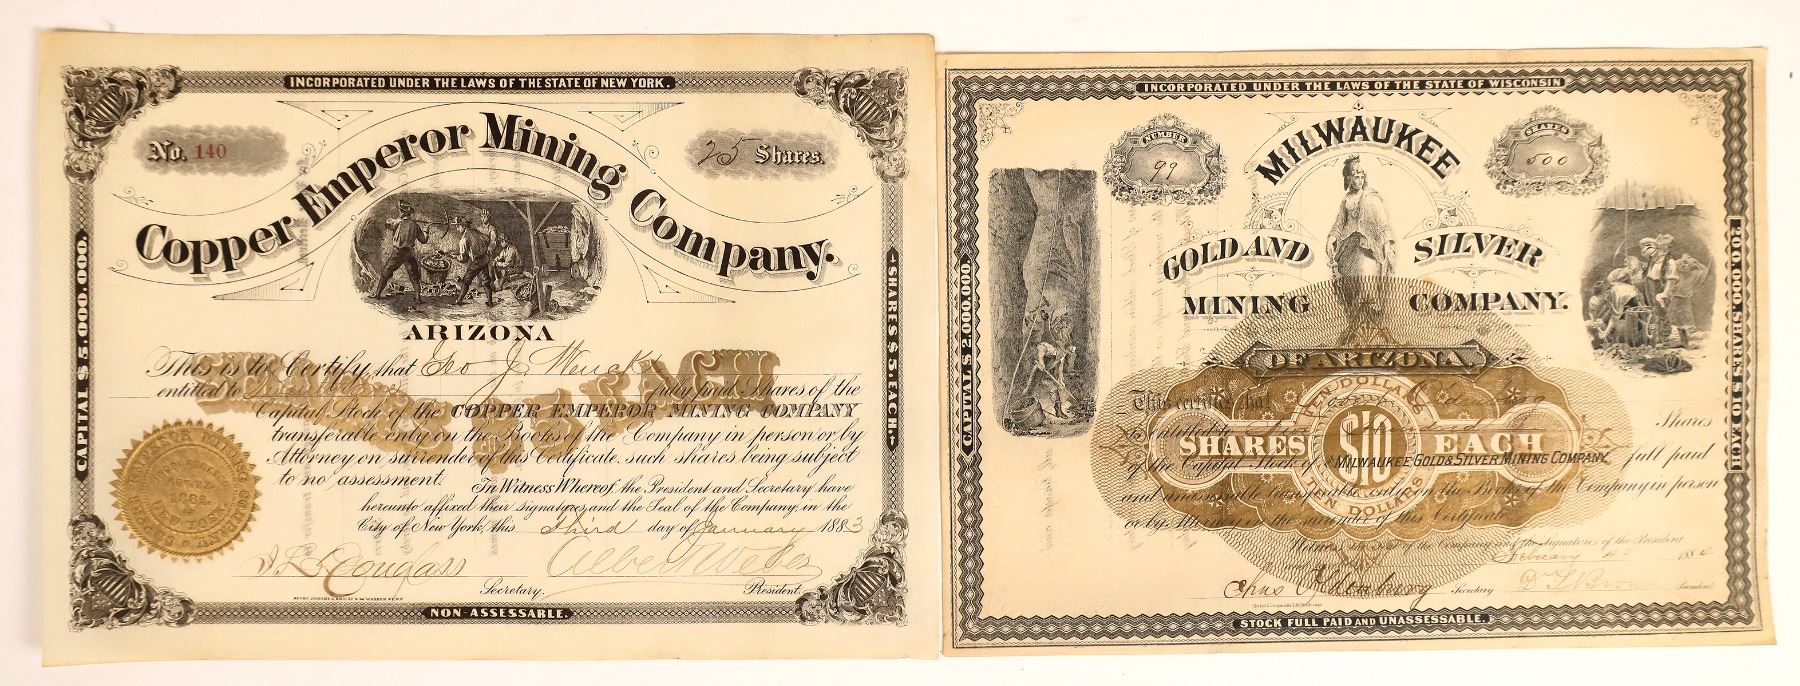 INCORPORATED UNDER THE LAWS OF THE STATE OF NEW YORK.
No. 140
25 Shares.
Copper Emperor Mining Company.
ARIZONA
CAPITAL $ 5.000.000.
SHARES $ 5. EACH.
This is to Certify that Geo J. Wenck
entitled to fully paid Shares of the
Capital Stock of the COPPER EMPEROR MINING COMPANY
transferable only on the Books of the Company in person or by
Attorney on surrender of this Certificate. such shares being subject
to no assessment. In Witness Whereof, the President and Secretary have
hereunto affixed their signatures, and the Seal of the Company, in the
City of New York, this third day of January 1883
Albert Weber
Secretary. President.
NON-ASSESSABLE.
INCORPORATED UNDER THE LAWS OF THE STATE OF WISCONSIN
NUMBER
99
SHARES
500
MILWAUKEE
GOLD AND SILVER
MINING COMPANY.
OF ARIZONA.
CAPITAL $ 2.000.000.
200.000 SHARES $ 10 EACH
This certifies that Robert
TEN DOLLARS
is entitled to Shares
SHARES $10 EACH
of the Capital Stock of MILWAUKEE GOLD & SILVER MINING COMPANY full paid
TEN DOLLARS
and unassessable transferable only on the Books of the Company in person
or by Attorney on the surrender of this Certificate.
Witness the Seal of the Company and the Signatures of the President
February 4th 1884
Secretary President
STOCK FULL PAID AND UNASSESSABLE.